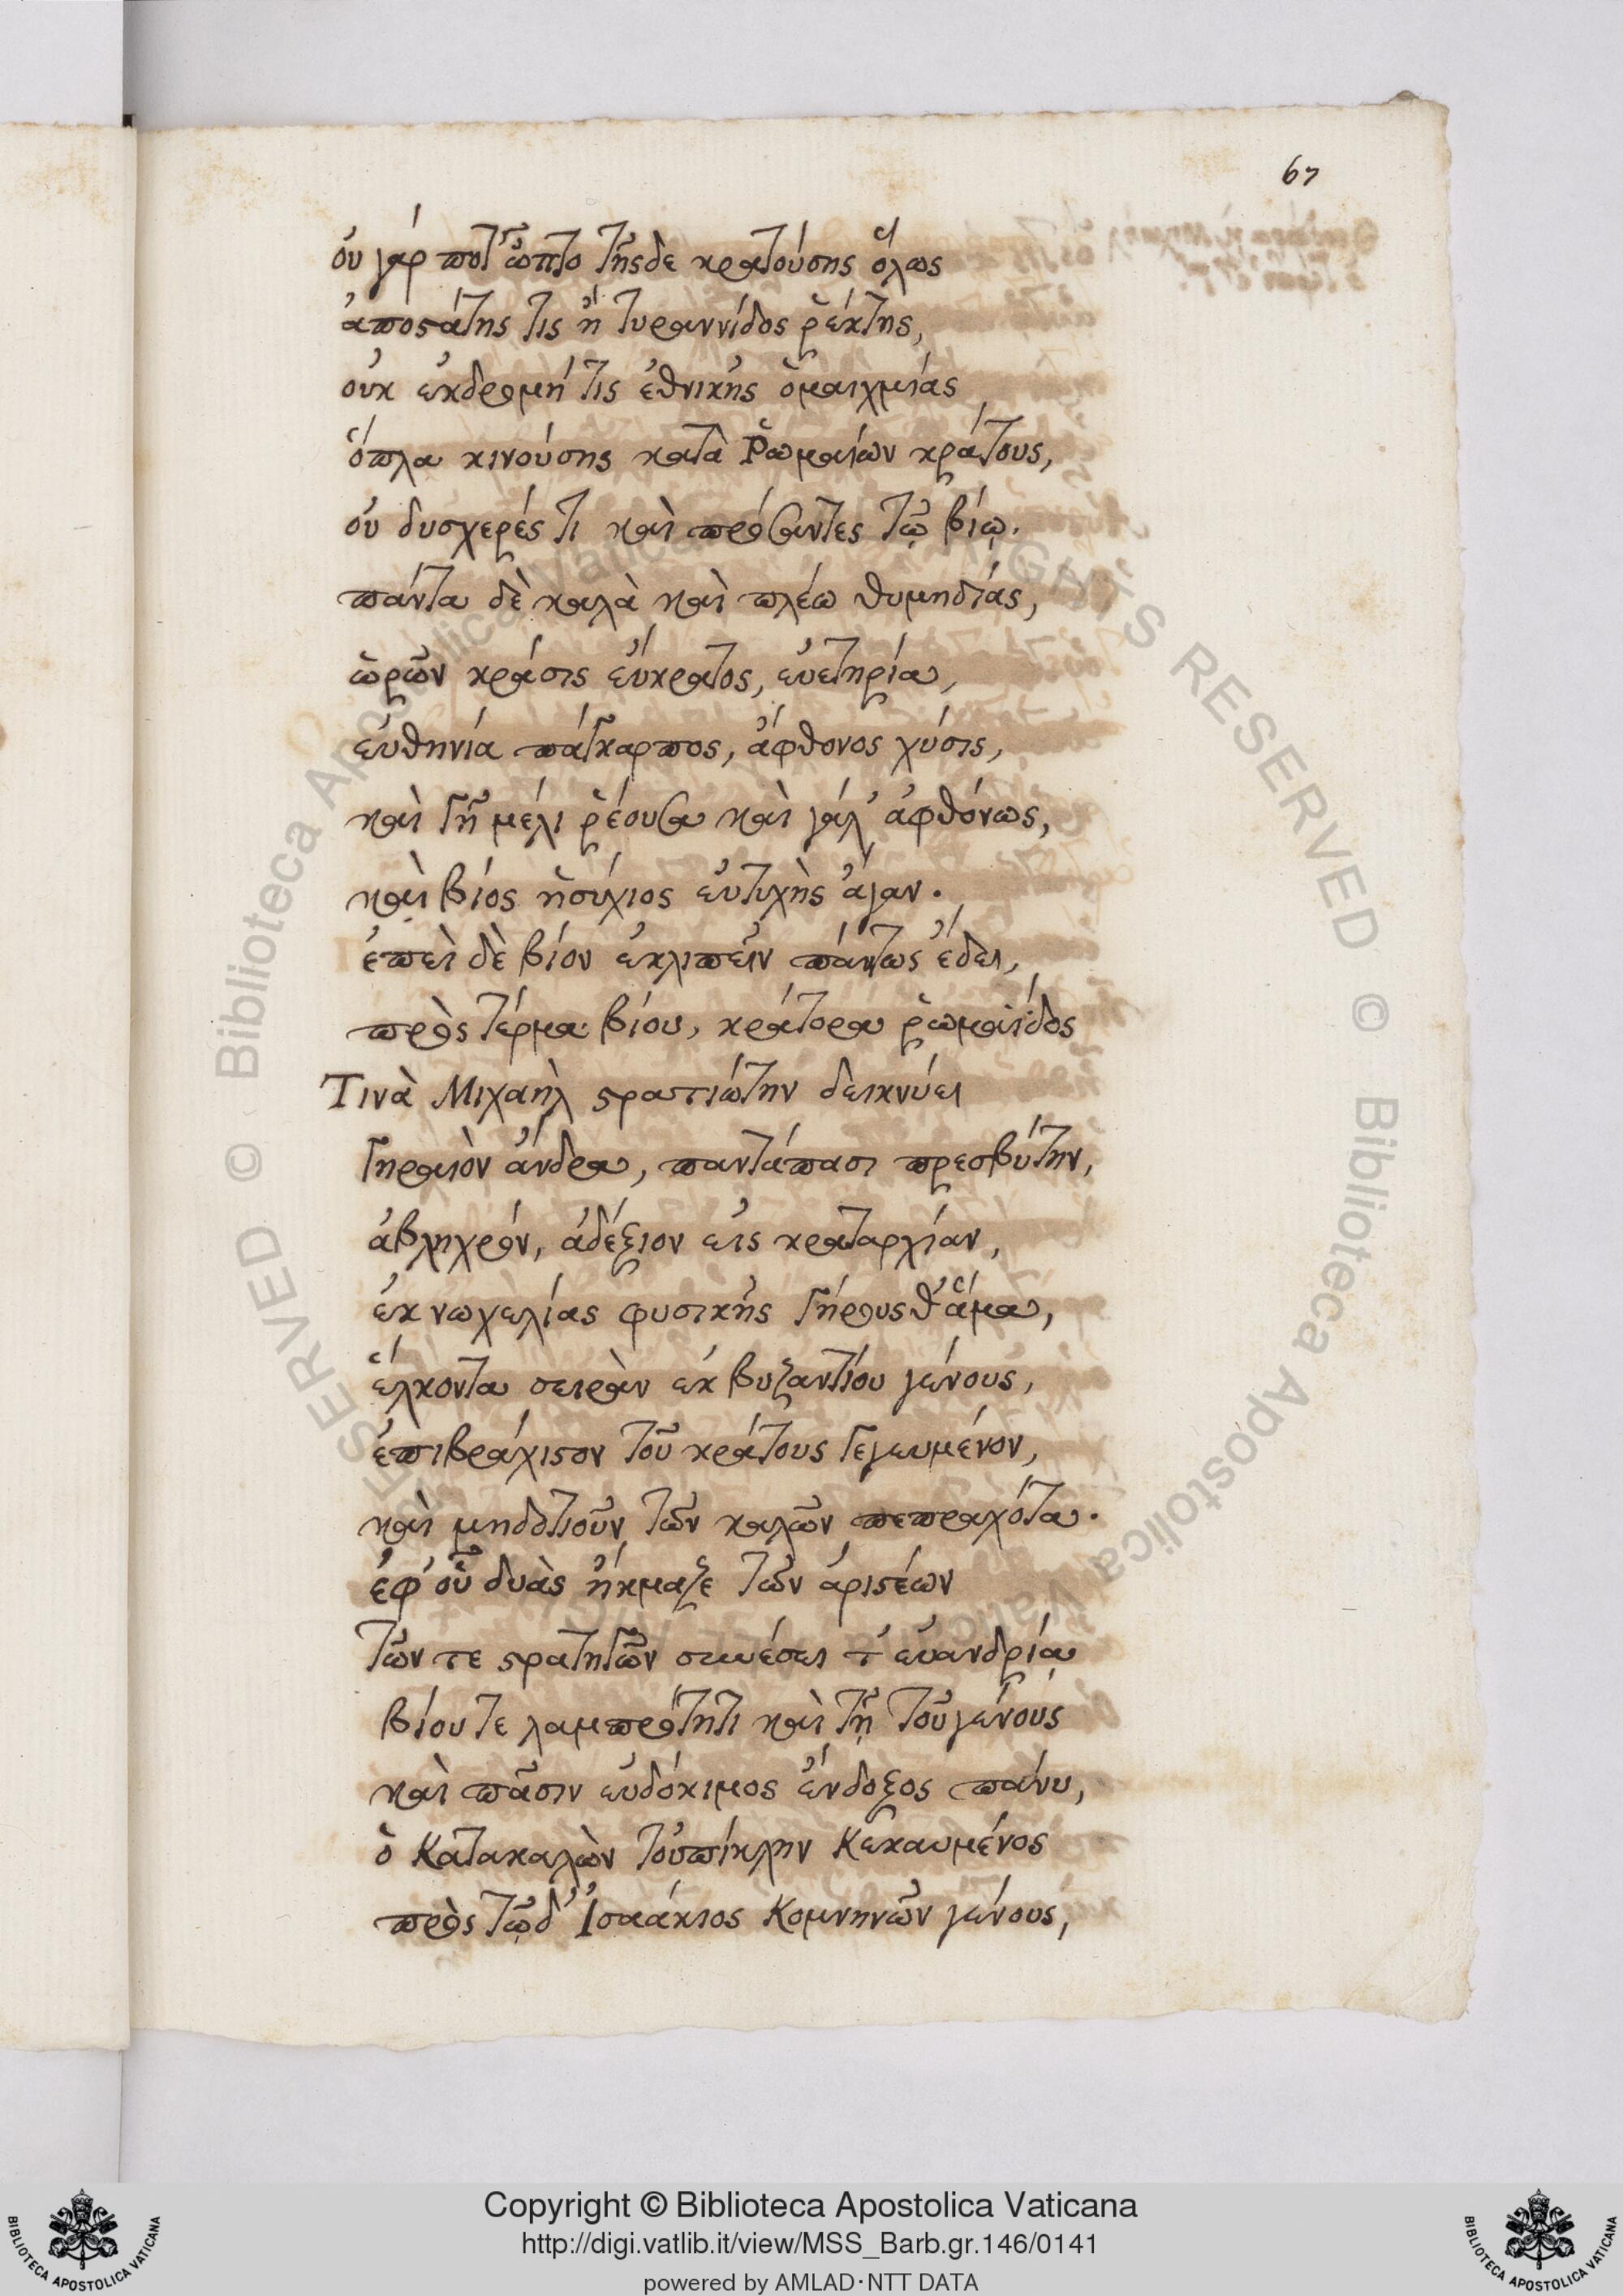 67
οὐ γάρ ποτ' ὦπτο τῆσδε κρατούσης ὅλως
ἀποστάτης τις ἢ τυραννίδος ῥέκτης,
οὐκ ἐκδρομή τις ἐθνικῆς ὁμαιχμίας
ὅπλα κινούσης κατὰ Ῥωμαίων κράτους,
οὐ δυσχερές τι καὶ προσάντες τῷ βίῳ.
πάντα δὲ καλὰ καὶ πλέω θυμηδίας,
ὡρῶν κράσις εὔκρατος, εὐετηρία,
εὐθηνία πάγκαρπος, ἄφθονος χύσις,
καὶ γῆ μέλι ῥέουσα καὶ γάλ' ἀφθόνως,
καὶ βίος ἡσύχιος εὐτυχὴς ἄγαν.
ἐπεὶ δὲ βίον ἐκλιπεῖν πάντως ἔδει,
πρὸς τέρμα βίου, κράτορα ῥωμαΐδος
Τινὰ Μιχαὴλ στρατιώτην δεικνύει
γηραιὸν ἄνδρα, παντάπασι πρεσβύτην,
ἀβληχρόν, ἀδέξιον εἰς κραταρχίαν,
ἐκ νωχελίας φυσικῆς γήρους θ' ἅμα,
ἕλκοντα σειρὰν ἐκ βυζαντίου γένους,
ἐπιβράχιστον τοῦ κράτους γεγευμένον,
καὶ μηδοτιοῦν τῶν καλῶν πεπραχότα.
ἐφ' οὗ δυὰς ἤκμαζε τῶν ἀριστέων
τῶν τε στρατηγῶν συνέσει τ' εὐανδρίᾳ
βίου τε λαμπρότητι καὶ τῇ τοῦ γένους
καὶ πᾶσιν εὐδόκιμος ἔνδοξος πάνυ,
ὁ Κατακαλὼν τοὐπίκλην Κεκαυμένος
πρὸς τῷδ' Ἰσαάκιος Κομνηνῶν γένους,
Copyright © Biblioteca Apostolica Vaticana
http://digi.vatlib.it/view/MSS_Barb.gr.146/0141
powered by AMLAD·NTT DATA